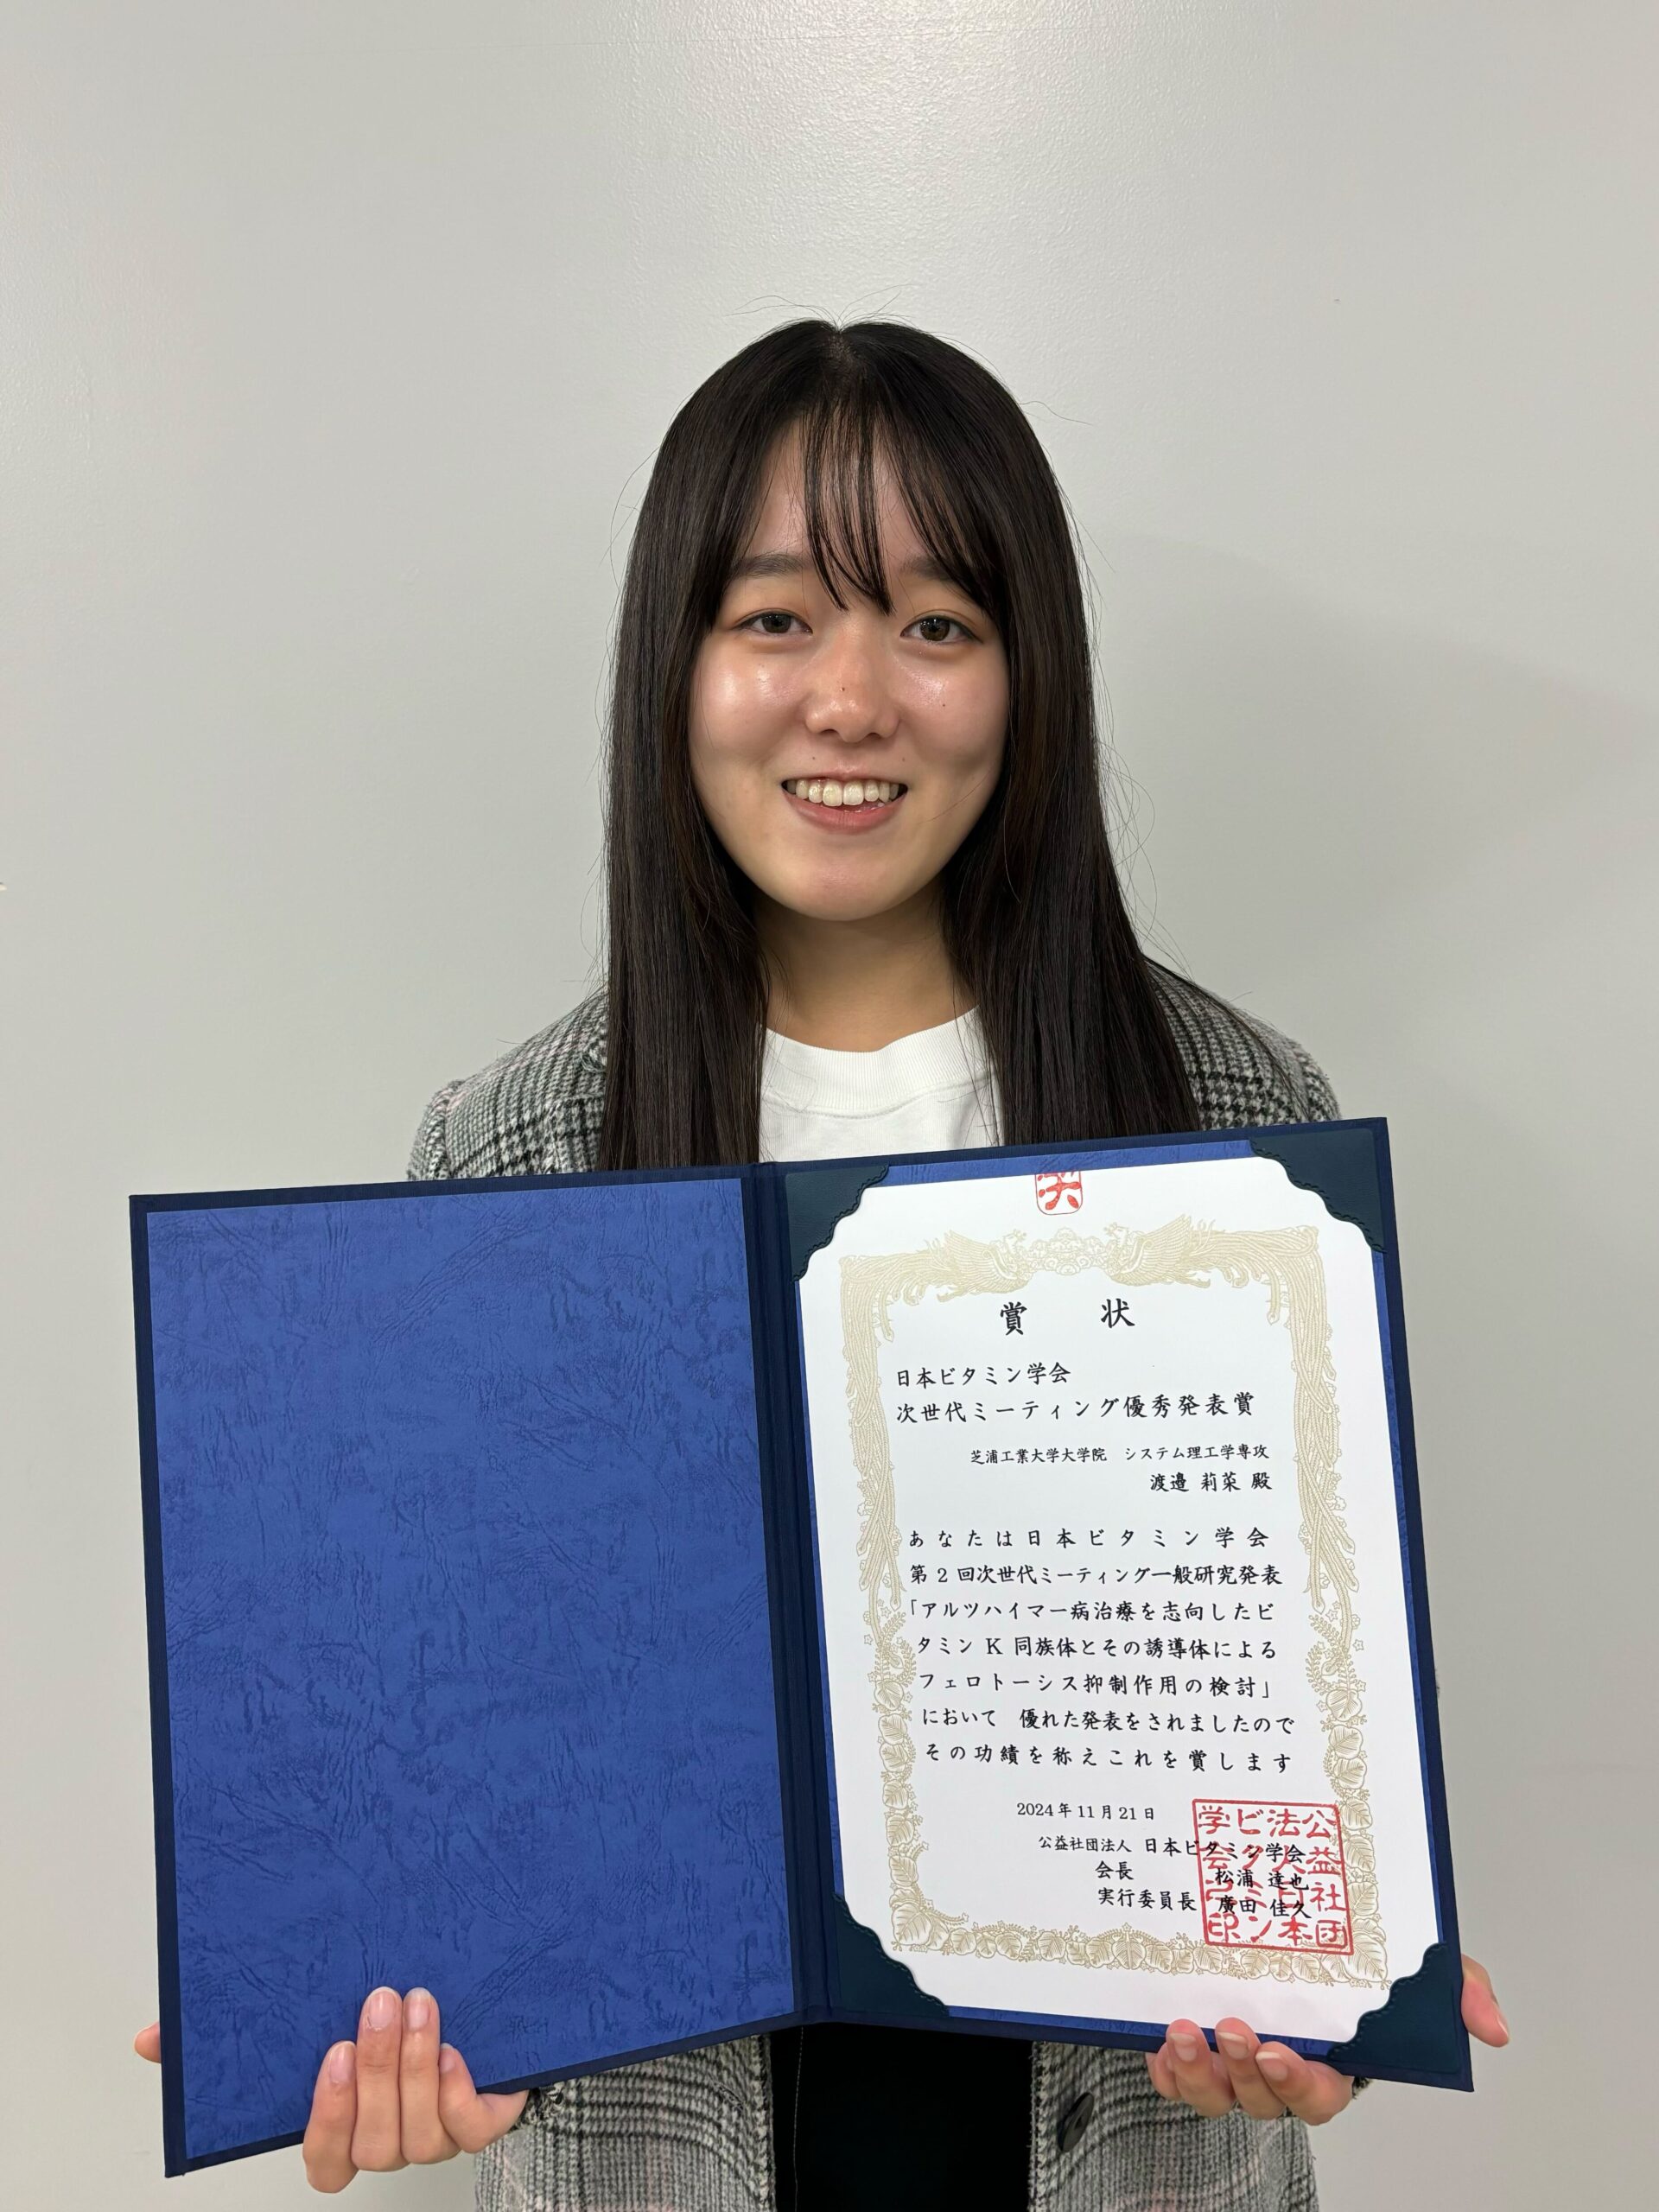 賞状
日本ビタミン学会
次世代ミーティング優秀発表賞
芝浦工業大学大学院 システム理工学専攻
渡邉 莉菜 殿
あなたは日本ビタミン学会
第2回次世代ミーティング一般研究発表
「アルツハイマー病治療を志向したビ
タミン K 同族体とその誘導体による
フェロトーシス抑制作用の検討」
において 優れた発表をされましたので
その功績を称えこれを賞します
2024年11月21日
公益社団法人 日本ビタミン学会
会長 松浦 達也
実行委員長 廣田 佳久
公益社団
法人日本
ビタミン
学会之印